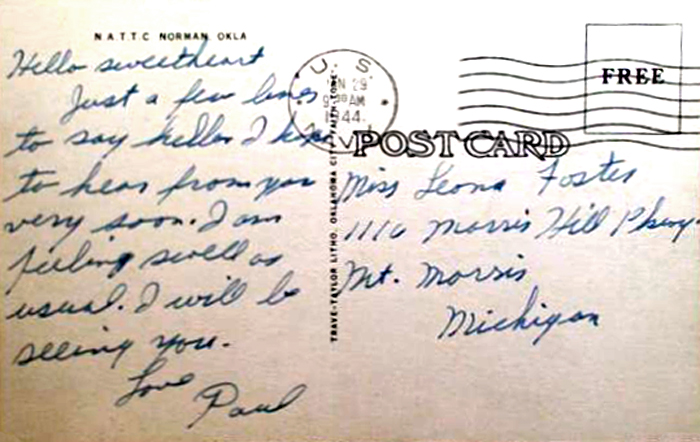 N A T T C NORMAN, OKLA
Hello sweetheart
Just a few lines
to say hello. I hope
to hear from you
very soon. I am
feeling swell as
usual. I will be
seeing you.
Love
Paul
TRAVE-TAYLOR LITHO, OKLAHOMA CITY
U. S.
29
AM
1944
FREE
POST CARD
Miss Leona Foster
1116 Morris Hill Pkwy.
Mt. Morris
Michigan